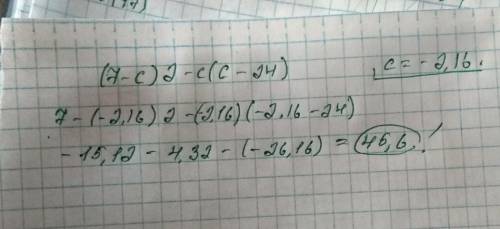 (7-c)2-c(c-24) c=-2,16.
7-(-2,16)2-(2,16)(-2,16-24)
-15,12-4,32-(-26,16)=45,6.!